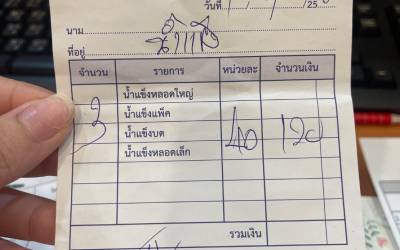 วันที่ /25
นาม น้ำแข็ง
ที่อยู่
จำนวน รายการ หน่วยละ จำนวนเงิน
น้ำแข็งหลอดใหญ่
น้ำแข็งแพ็ค
3 น้ำแข็งบด 40 120
น้ำแข็งหลอดเล็ก
รวมเงิน